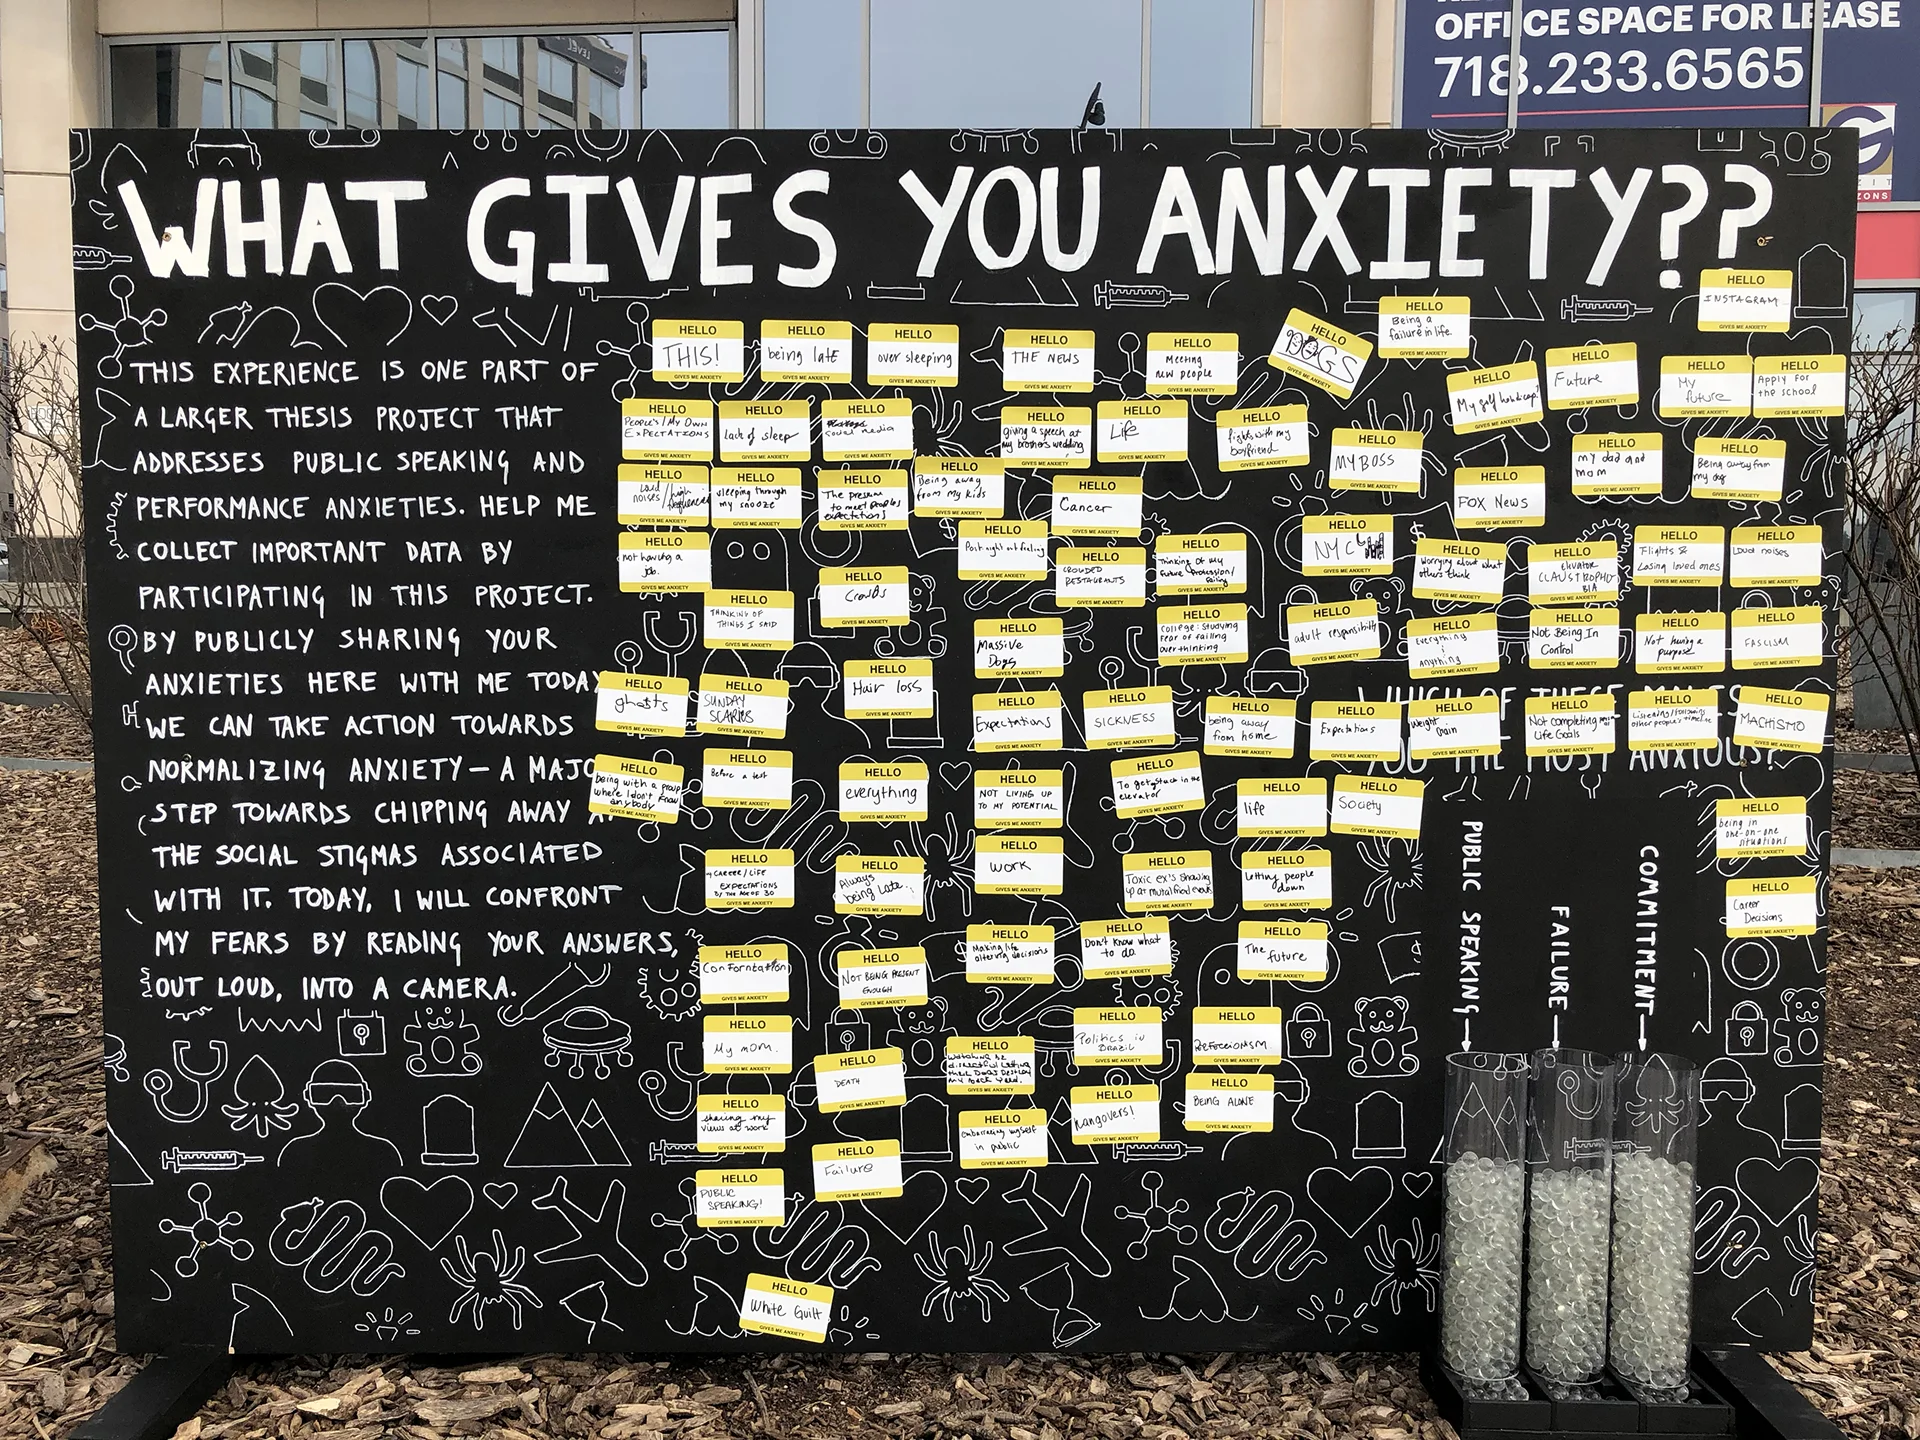 OFFICE SPACE FOR LEASE
718.233.6565
WHAT GIVES YOU ANXIETY??
THIS EXPERIENCE IS ONE PART OF
A LARGER THESIS PROJECT THAT
ADDRESSES PUBLIC SPEAKING AND
PERFORMANCE ANXIETIES. HELP ME
COLLECT IMPORTANT DATA BY
PARTICIPATING IN THIS PROJECT.
BY PUBLICLY SHARING YOUR
ANXIETIES HERE WITH ME TODAY
WE CAN TAKE ACTION TOWARDS
NORMALIZING ANXIETY — A MAJO
STEP TOWARDS CHIPPING AWAY A
THE SOCIAL STIGMAS ASSOCIATED
WITH IT. TODAY, I WILL CONFRONT
MY FEARS BY READING YOUR ANSWERS,
OUT LOUD, INTO A CAMERA.
HELLO
INSTAGRAM
GIVES ME ANXIETY
HELLO
THIS!
GIVES ME ANXIETY
HELLO
being late
GIVES ME ANXIETY
HELLO
over sleeping
GIVES ME ANXIETY
HELLO
THE NEWS
GIVES ME ANXIETY
HELLO
Meeting
new people
GIVES ME ANXIETY
HELLO
GIVES ME ANXIETY
HELLO
Being a
failure in life.
GIVES ME ANXIETY
HELLO
My golf handicap!
GIVES ME ANXIETY
HELLO
Future
GIVES ME ANXIETY
HELLO
My
future
GIVES ME ANXIETY
HELLO
Apply for
the school
GIVES ME ANXIETY
HELLO
PEOPLE'S/MY OWN
EXPECTATIONS
GIVES ME ANXIETY
HELLO
Lack of sleep
GIVES ME ANXIETY
HELLO
social media
GIVES ME ANXIETY
HELLO
giving a speech at
my brothers wedding
GIVES ME ANXIETY
HELLO
Life
GIVES ME ANXIETY
HELLO
fights with my
boyfriend
GIVES ME ANXIETY
HELLO
MY BOSS
GIVES ME ANXIETY
HELLO
my dad and
mom
GIVES ME ANXIETY
HELLO
Being away from
my dog
GIVES ME ANXIETY
HELLO
Loud
noises/high
GIVES ME ANXIETY
HELLO
sleeping through
my snooze
GIVES ME ANXIETY
HELLO
The pressure
to meet peoples
expectations
GIVES ME ANXIETY
HELLO
Being away
from my kids
GIVES ME ANXIETY
HELLO
Cancer
GIVES ME ANXIETY
HELLO
FOX News
GIVES ME ANXIETY
HELLO
not having a
job.
GIVES ME ANXIETY
HELLO
Post night out feeling
GIVES ME ANXIETY
HELLO
CROWDED
RESTAURANTS
GIVES ME ANXIETY
HELLO
Thinking of my
future profession/
failing
GIVES ME ANXIETY
HELLO
NYC
GIVES ME ANXIETY
HELLO
worrying about what
others think
GIVES ME ANXIETY
HELLO
elevator
CLAUSTROPHO-
BIA
GIVES ME ANXIETY
HELLO
Flights &
Losing loved ones
GIVES ME ANXIETY
HELLO
Loud noises
GIVES ME ANXIETY
HELLO
THINKING OF
THINGS I SAID
GIVES ME ANXIETY
HELLO
Crowds
GIVES ME ANXIETY
HELLO
Massive
Dogs
GIVES ME ANXIETY
HELLO
College: studying
fear of failing
over thinking
GIVES ME ANXIETY
HELLO
adult responsibility
GIVES ME ANXIETY
HELLO
Everything
&
anything
GIVES ME ANXIETY
HELLO
Not Being In
Control
GIVES ME ANXIETY
HELLO
Not having a
purpose
GIVES ME ANXIETY
HELLO
FASCISM
GIVES ME ANXIETY
HELLO
ghosts
GIVES ME ANXIETY
HELLO
SUNDAY
SCARIES
GIVES ME ANXIETY
HELLO
Hair loss
GIVES ME ANXIETY
HELLO
Expectations
GIVES ME ANXIETY
HELLO
SICKNESS
GIVES ME ANXIETY
HELLO
being away
from home
GIVES ME ANXIETY
HELLO
Expectations
GIVES ME ANXIETY
HELLO
Weight
Gain
GIVES ME ANXIETY
HELLO
Not completing
Life Goals
GIVES ME ANXIETY
HELLO
Listening/following
other people's timeline
GIVES ME ANXIETY
HELLO
MACHISMO
GIVES ME ANXIETY
WHICH OF THESE MAKES
YOU THE MOST ANXIOUS?
HELLO
being with a group
where I don't know
anybody
GIVES ME ANXIETY
HELLO
Before a test
GIVES ME ANXIETY
HELLO
everything
GIVES ME ANXIETY
HELLO
NOT LIVING UP
TO MY POTENTIAL
GIVES ME ANXIETY
HELLO
To get stuck in the
elevator
GIVES ME ANXIETY
HELLO
life
GIVES ME ANXIETY
HELLO
Society
GIVES ME ANXIETY
HELLO
being in
one-on-one
situations
GIVES ME ANXIETY
HELLO
CAREER/LIFE
EXPECTATIONS
BY THE AGE OF 30
GIVES ME ANXIETY
HELLO
Always
being late...
GIVES ME ANXIETY
HELLO
work
GIVES ME ANXIETY
HELLO
Toxic ex's showing
up at mutual friend events
GIVES ME ANXIETY
HELLO
Letting people
down
GIVES ME ANXIETY
HELLO
Career
Decisions
GIVES ME ANXIETY
HELLO
Conforntation
GIVES ME ANXIETY
HELLO
NOT BEING PRESENT
ENOUGH
GIVES ME ANXIETY
HELLO
Making life
altering decisions
GIVES ME ANXIETY
HELLO
Don't know what
to do.
GIVES ME ANXIETY
HELLO
The
future
GIVES ME ANXIETY
PUBLIC SPEAKING
FAILURE
COMMITMENT
HELLO
My mom.
GIVES ME ANXIETY
HELLO
DEATH
GIVES ME ANXIETY
HELLO
letting
their Dogs Destroy
my Back yard.
GIVES ME ANXIETY
HELLO
Politics in
BRAZIL
GIVES ME ANXIETY
HELLO
GIVES ME ANXIETY
HELLO
sharing my
views at work
GIVES ME ANXIETY
HELLO
embarrassing myself
in public
GIVES ME ANXIETY
HELLO
hangovers!
GIVES ME ANXIETY
HELLO
BEING ALONE
GIVES ME ANXIETY
HELLO
PUBLIC
SPEAKING!
GIVES ME ANXIETY
HELLO
Failure
GIVES ME ANXIETY
HELLO
White Guilt
GIVES ME ANXIETY